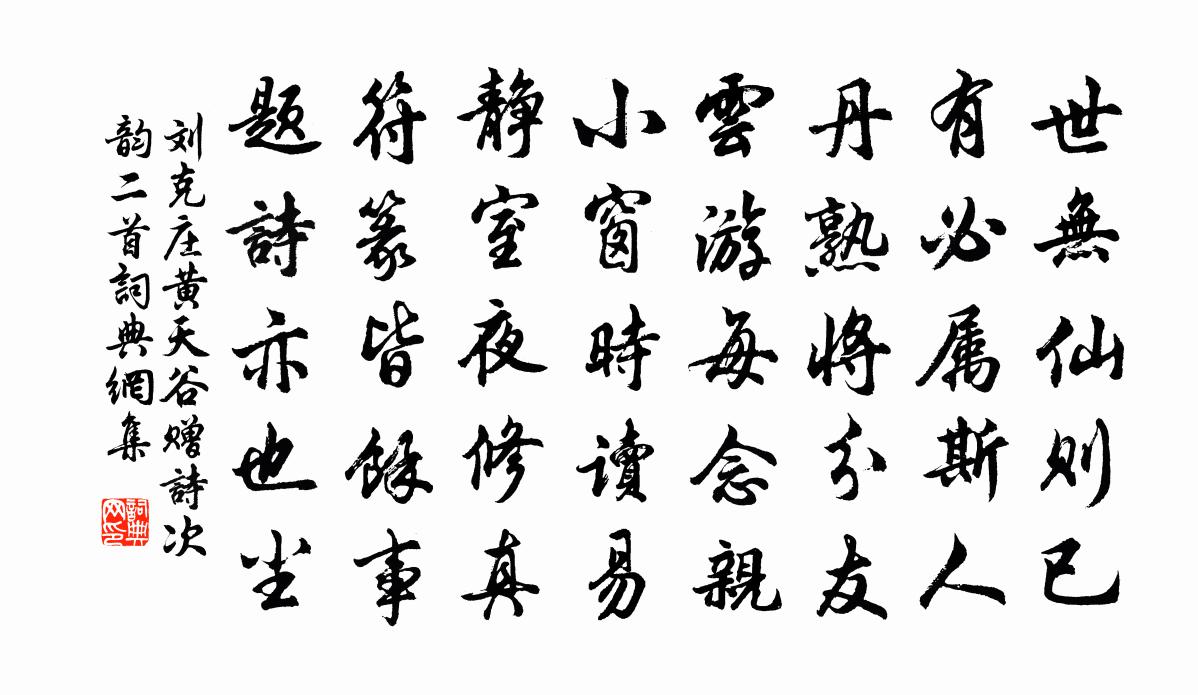 世無仙則已
有必属斯人
丹熟將分友
雲游每念親
小窗時讀易
静室夜修真
符篆皆餘事
题詩亦也尘
刘克庄黄天谷赠詩次
韵二首詞典網集
詞典
网印